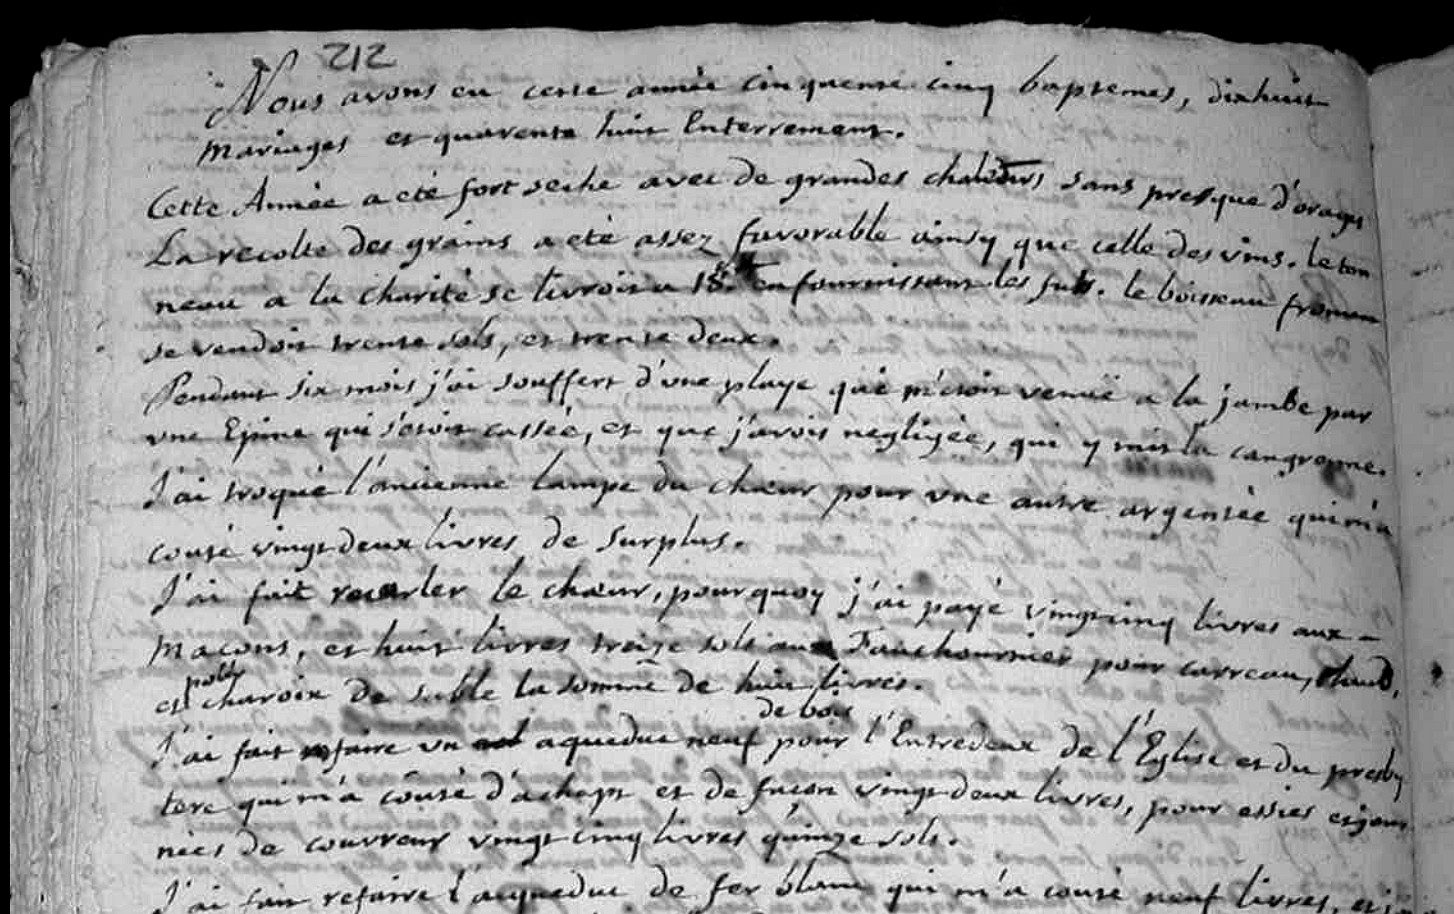 212
Nous avons eu cette année cinquente cinq baptemes, dixhuit
mariages et quarente huit Enterrement.
Cette Année a eté fort seche avec de grandes chaleurs sans presque d'orages
La recolte des grains a eté assez favorable ainsy que celle des vins. le ton
neau a la charité se livroit a 18 en fournissant les futs. le boisseau fromen
se vendoit trente sols, et trente deux.
Pendant six mois j'ai souffert d'une playe qui m'etoit venuë a la jambe par
une Epine qui s'etoit cassée, et que j'avois negligée, qui y mit la cangrenne.
J'ai troqué l'ancienne lampe du chœur pour une autre argentée qui m'a
couté vingt deux livres de surplus.
J'ai fait recarler le chœur, pourquoy j'ai payé vingt cinq livres aux
macons, et huit livres treize sols au Fauchournier pour carreau, chaud,
et pour charoix de sable la somme de huit livres.
de bois
J'ai fait refaire un aqueduc neuf pour l'Entredeux de l'Eglise et du presby
tere qui m'a couté d'achapt et de facon vingt deux livres, pour essies et jour
nées de couvreur vingt cinq livres quinze sols.
J'ai fait refaire l'acqueduc de fer blanc qui m'a couté neuf livres, et